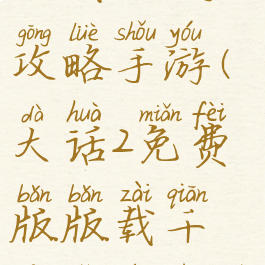 gōng lüè shǒu yóu
攻略手游(
dà huà miǎn fèi
大话2免费
bǎn bǎn zài qiān
版版载千